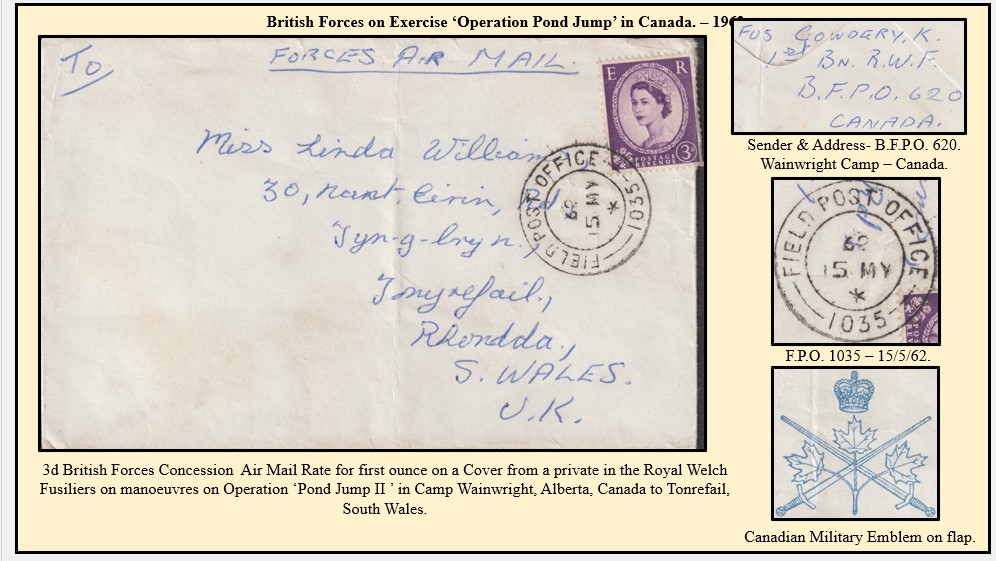 British Forces on Exercise ‘Operation Pond Jump’ in Canada. – 196
To
FORCES AIR MAIL.
E R
POSTAGE
REVENUE
3D
Miss Linda William
30, nant. Eirin, Rd
Tyn-y-bryn.,
Tonyrefail.,
Rhondda.,
S. WALES.
U.K.
FIELD POST OFFICE
62
15 MY
*
1035
FUS COWDERY. K.
1st BN. R.W.F.
B.F.P.O. 620
CANADA.
Sender & Address- B.F.P.O. 620.
Wainwright Camp – Canada.
FIELD POST OFFICE
62
15 MY
*
1035
F.P.O. 1035 – 15/5/62.
3d British Forces Concession Air Mail Rate for first ounce on a Cover from a private in the Royal Welch
Fusiliers on manoeuvres on Operation ‘Pond Jump II ’ in Camp Wainwright, Alberta, Canada to Tonrefail,
South Wales.
Canadian Military Emblem on flap.